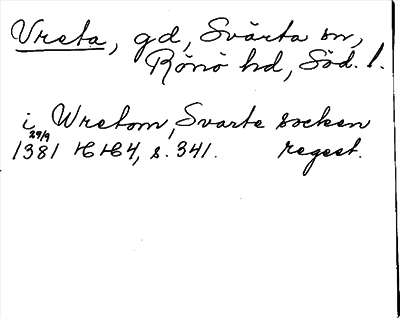 Vreta, gd, Svärta sn,
Rönö hd, Söd. l.
i Wretom, Svarte socken
29/9
1381 HH4, s. 341. regest.